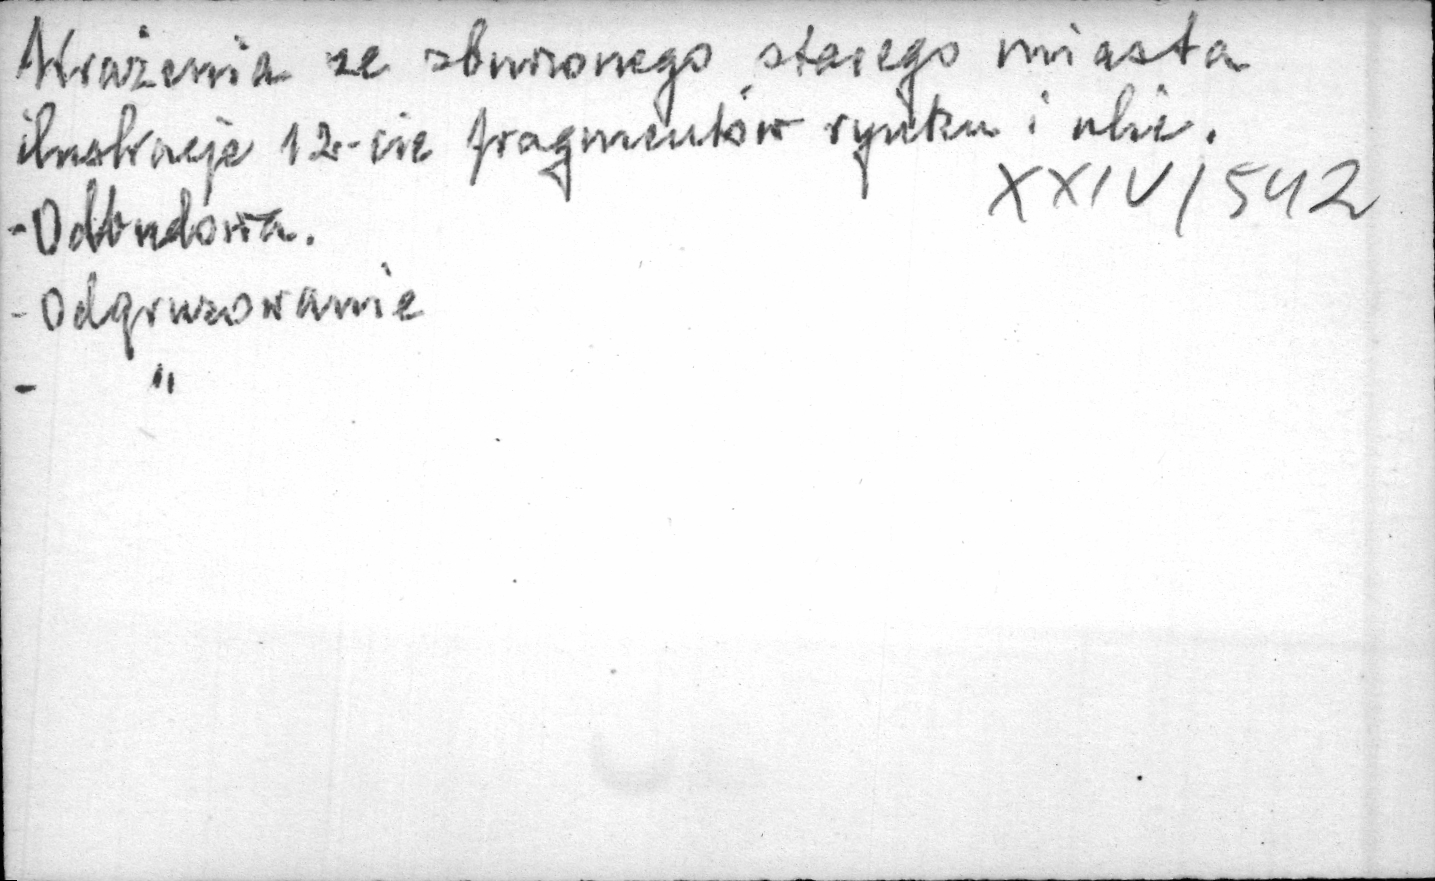 Wrażenia ze zburzonego starego miasta
ilustracje 12-cie fragmentów rynku i ulic.
XXIV/542
- Odbudowa.
- Odgruzowanie
- "